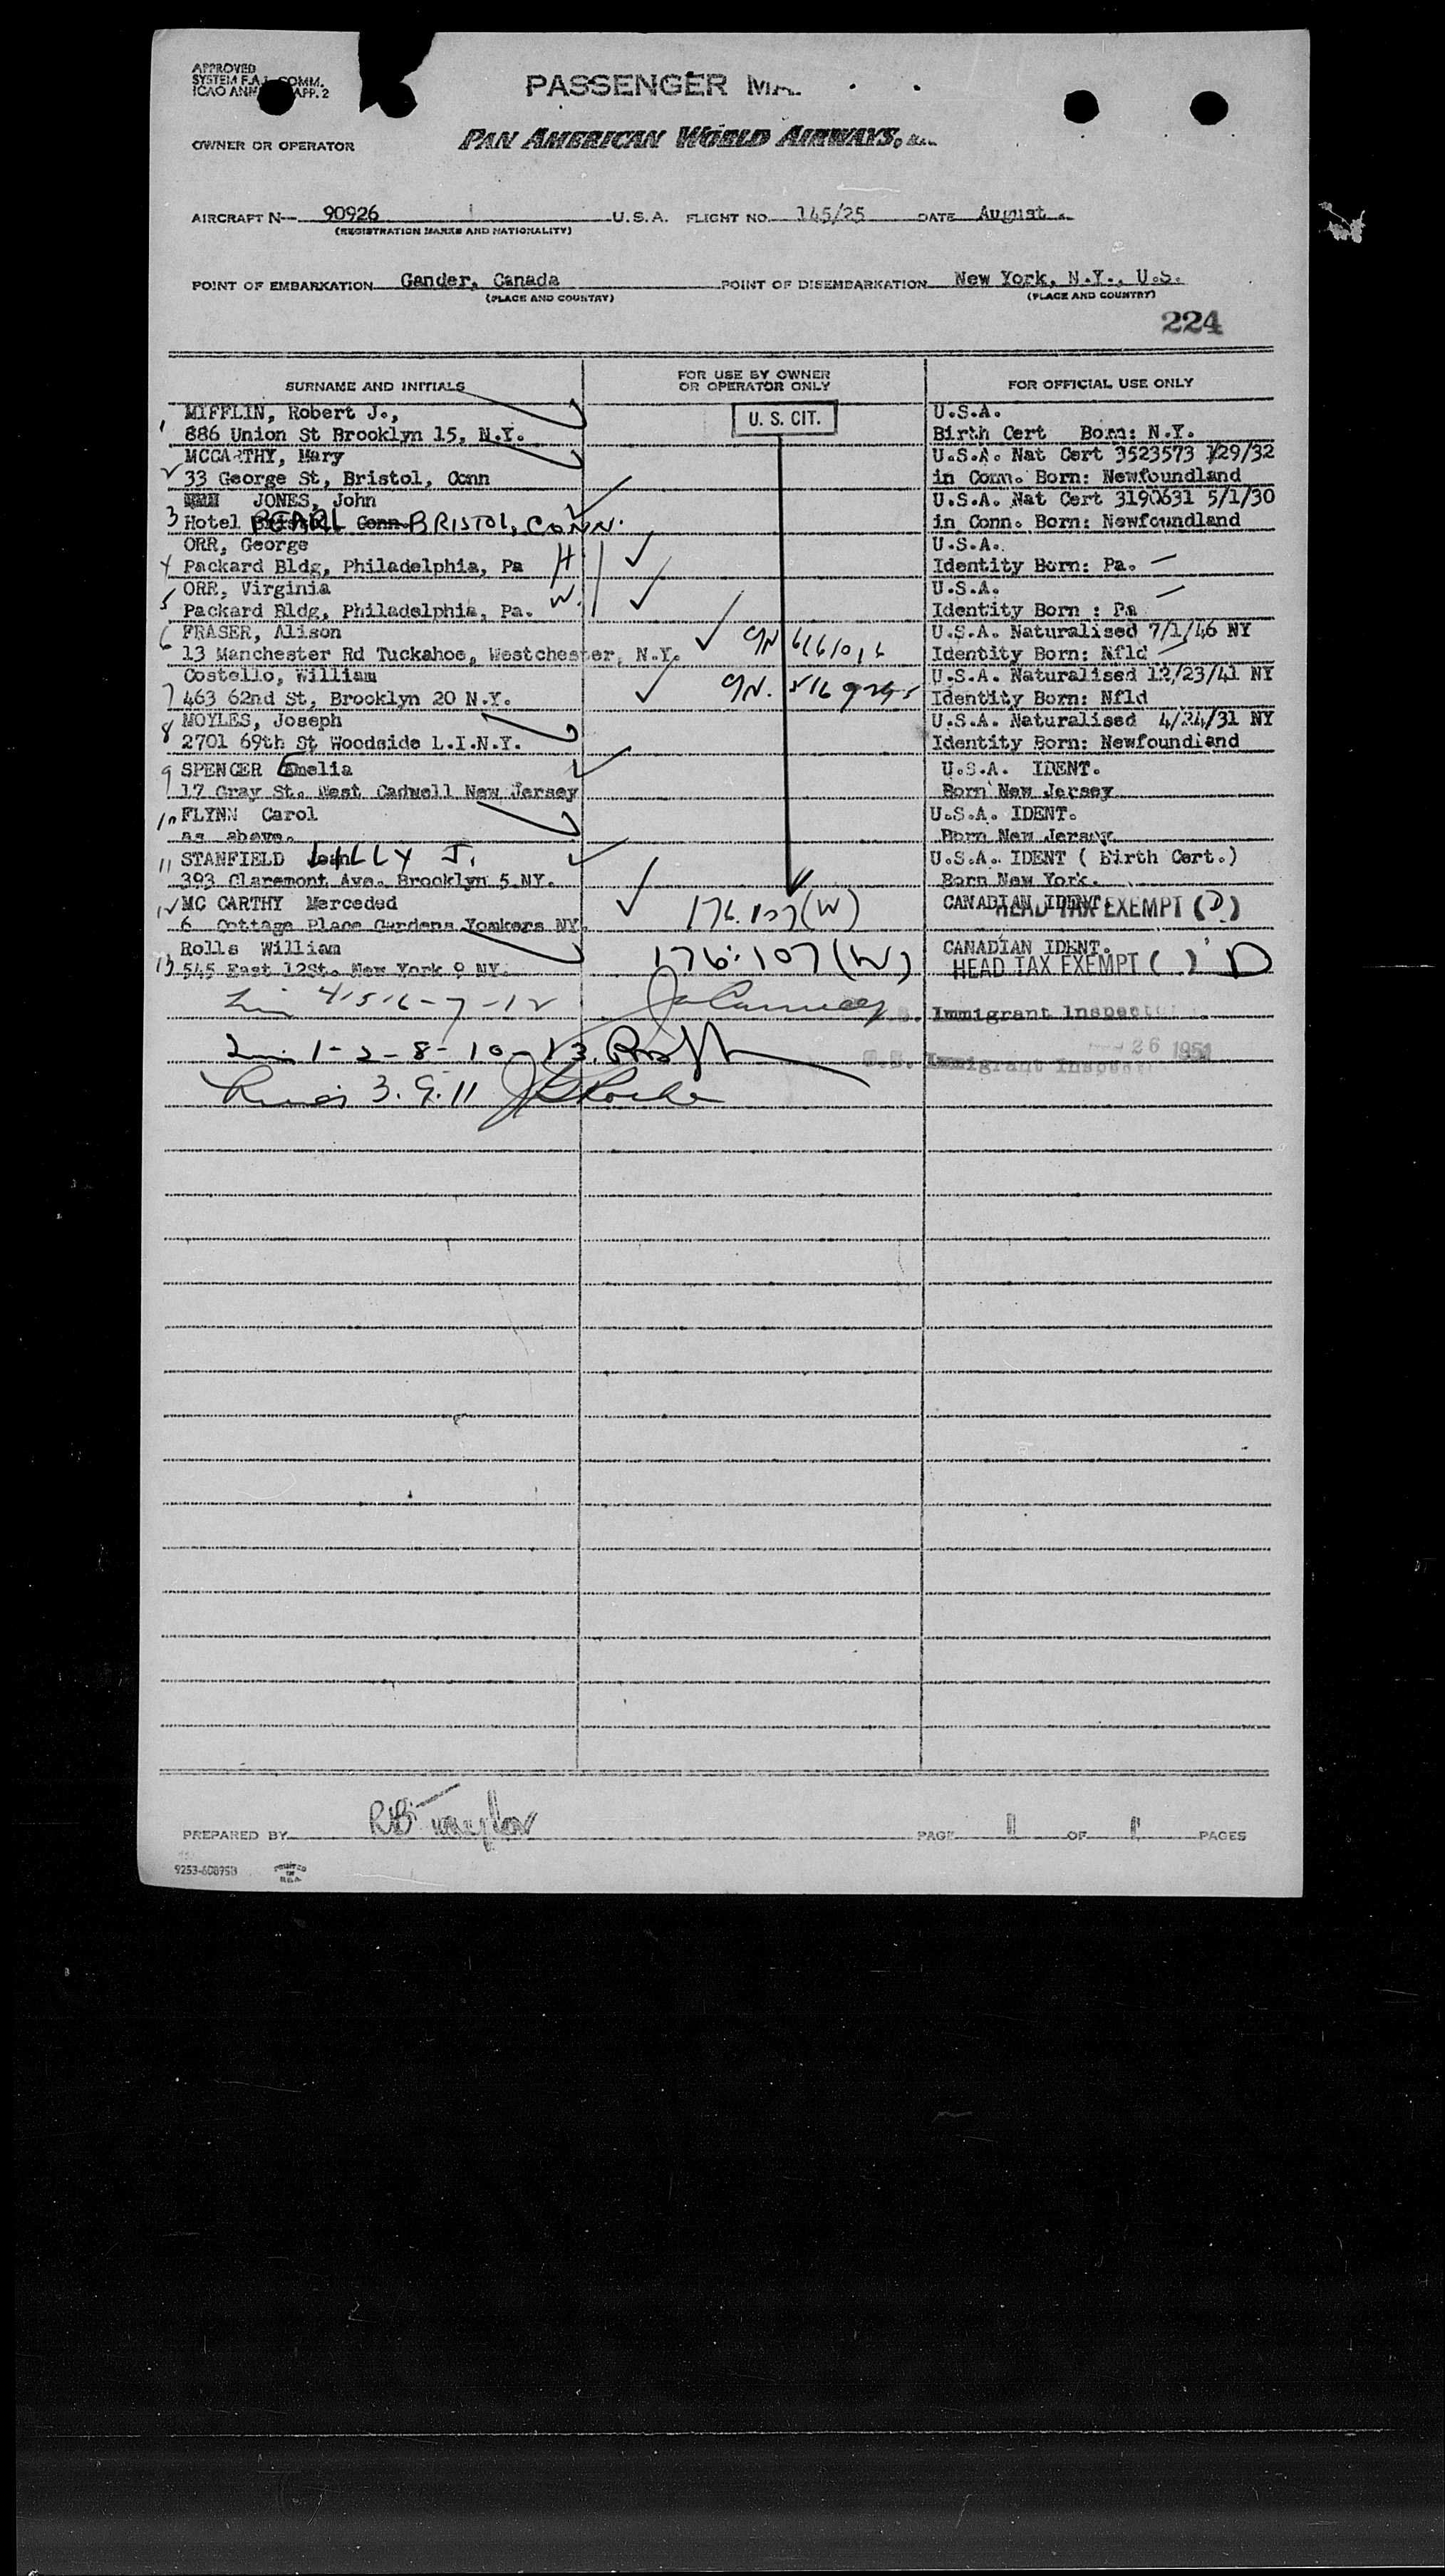 APPROVED
SYSTEM F.A.L. COMM.
ICAO ANN APP. 2
PASSENGER MA
OWNER OR OPERATOR PAN AMERICAN WORLD AIRWAYS,
AIRCRAFT N— 90926 U.S.A. FLIGHT NO. 145/25 DATE August
(REGISTRATION MARKS AND NATIONALITY)
POINT OF EMBARKATION Gander, Canada POINT OF DISEMBARKATION New York, N.Y., U.S.
(PLACE AND COUNTRY) (PLACE AND COUNTRY)
224
SURNAME AND INITIALS FOR USE BY OWNER OR OPERATOR ONLY FOR OFFICIAL USE ONLY
1 MIFFLIN, Robert J., U. S. CIT. U.S.A.
886 Union St Brooklyn 15, N.Y. Birth Cert Born: N.Y.
2 MCCARTHY, Mary U.S.A. Nat Cert 3523573 /29/32
33 George St, Bristol, Conn in Conn. Born: Newfoundland
JONES, John U.S.A. Nat Cert 3190631 5/1/30
3 Hotel PEARL Conn BRISTOL, CONN. in Conn. Born: Newfoundland
ORR, George U.S.A.
4 Packard Bldg, Philadelphia, Pa H Identity Born: Pa.
ORR, Virginia U.S.A.
5 Packard Bldg, Philadelphia, Pa. W. Identity Born : Pa
6 FRASER, Alison U.S.A. Naturalised 7/1/46 NY
13 Manchester Rd Tuckahoe, Westchester, N.Y. Identity Born: Nfld
Costello, William U.S.A. Naturalised 12/23/41 NY
7 463 62nd St, Brooklyn 20 N.Y. Identity Born: Nfld
8 MOYLES, Joseph U.S.A. Naturalised 4/24/31 NY
2701 69th St Woodside L.I.N.Y. Identity Born: Newfoundland
9 SPENCER Emelia U.S.A. IDENT.
17 Gray St. West Cadwell New Jersey Born New Jersey
10 FLYNN Carol U.S.A. IDENT.
as above. Born New Jersey
11 STANFIELD LILLY J. U.S.A. IDENT ( Birth Cert.)
393 Claremont Ave. Brooklyn 5 NY. Born New York.
12 MC CARTHY Merceded 176.107 (W) CANADIAN IDENT. HEAD TAX EXEMPT (D)
6 Cottage Place Gardens Yonkers NY.
Rolls William 176.107 (W) CANADIAN IDENT.
13 545 East 12St. New York 9 NY. HEAD TAX EXEMPT ( ) D
4-5-6-7-12 Immigrant Inspector
1-2-8-10-13. 26 1951
U.S. Immigrant Inspector
3. 9. 11
PREPARED BY PAGE 1 OF 1 PAGES
9253-60895B PRINTED IN U.S.A.